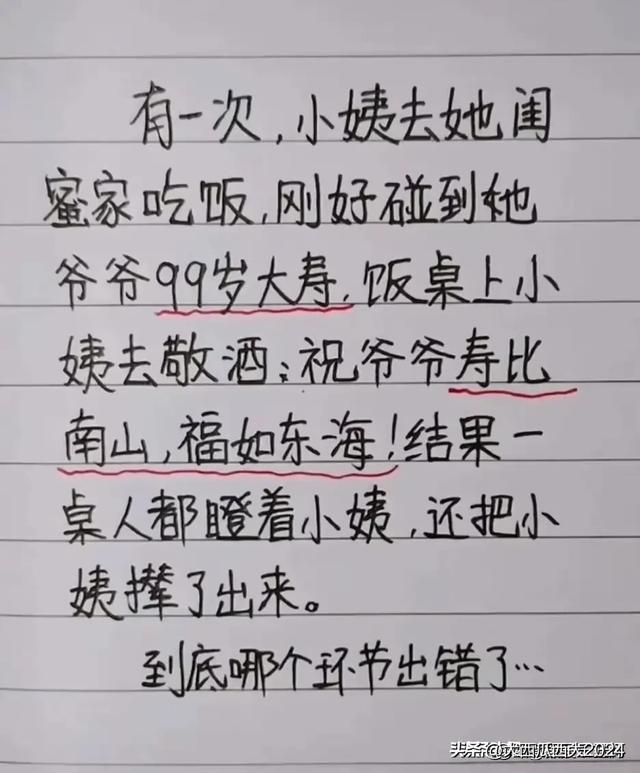 有一次,小姨去她闺
蜜家吃饭,刚好碰到她
爷爷99岁大寿,饭桌上小
姨去敬酒:祝爷爷寿比
南山,福如东海!结果一
桌人都瞪着小姨,还把小
姨撵了出来。
到底哪个环节出错了…